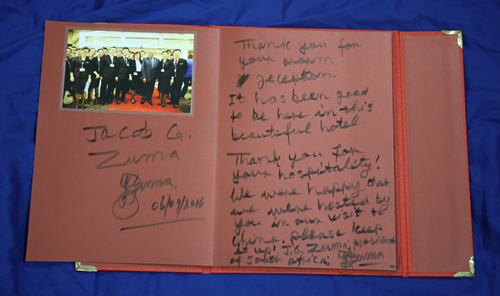 Jacob G.
Zuma
Zuma,
06/09/2016
Thank you for
your warm
reception.
It has been good
to be here in this
beautiful hotel.
Thank you for
your hospitality!
We were happy that
we were hosted by
you in our visit to
China, please keep
it up! J.G. Zuma, president
of South Africa. Zuma